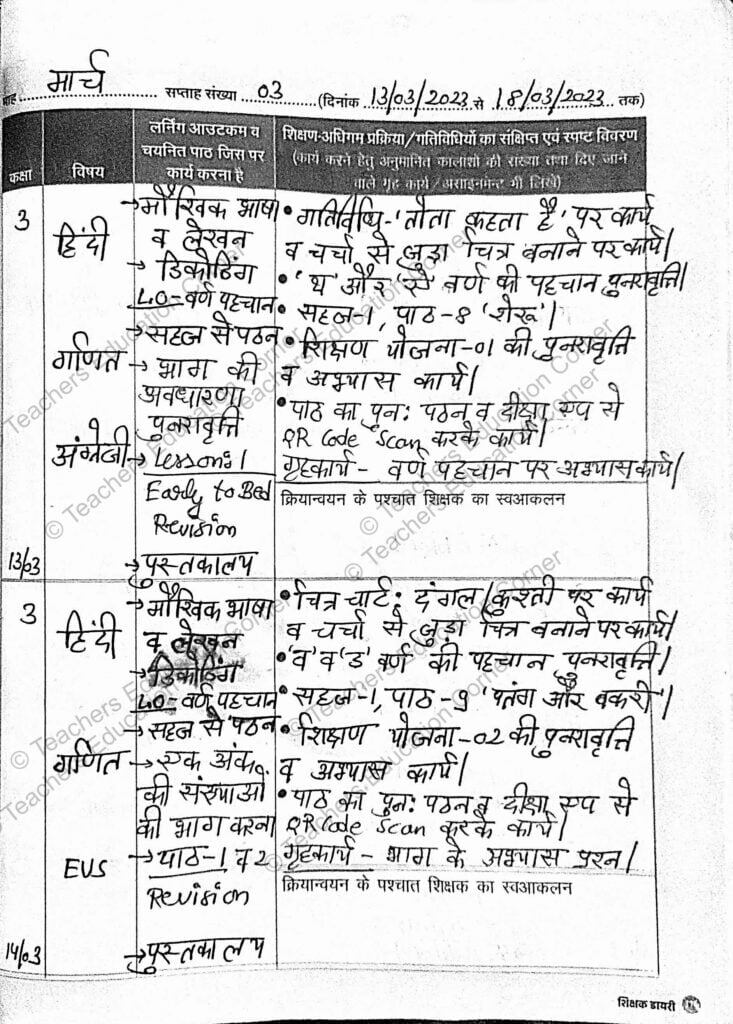 माह मार्च सप्ताह संख्या 03 (दिनांक 13/03/2023 से 18/03/2023 तक)
कक्षा
विषय
लर्निंग आउटकम व
चयनित पाठ जिस पर
कार्य करना है
शिक्षण-अधिगम प्रक्रिया/गतिविधियों का संक्षिप्त एवं स्पष्ट विवरण
(कार्य करने हेतु अनुमानित कालांशो की संख्या तथा दिए जाने
वाले गृह कार्य/असाइनमेन्ट भी लिखें)
3
हिंदी
गणित
अंग्रेजी
13/03
→ मौखिक भाषा
व लेखन
→ डिकोडिंग
LO=वर्ण पहचान
→ सहज से पठन
→ भाग की
अवधारणा
पुनरावृत्ति
→ Lesson:1
Early to Bed
Revision
→ पुस्तकालय
• गतिविधि-'तोता कहता है' पर कार्य
व चर्चा से जुड़ा चित्र बनाने पर कार्य।
• 'थ' और 'से' वर्ण की पहचान पुनरावृत्ति।
• सहज-1, पाठ-8 'शेरू'।
• शिक्षण योजना-01 की पुनरावृत्ति
व अभ्यास कार्य।
• पाठ का पुन: पठन व दीक्षा एप से
QR Code Scan करके कार्य।
गृहकार्य - वर्ण पहचान पर अभ्यास कार्य।
क्रियान्वयन के पश्चात शिक्षक का स्वआकलन
3
हिंदी
गणित
EVS
14/03
→ मौखिक भाषा
व लेखन
→ डिकोडिंग
LO=वर्ण पहचान
→ सहज से पठन
→ एक अंक
की संख्याओं
की भाग करना
→ पाठ-1 व 2
Revision
→ पुस्तकालय
• चित्र चार्ट: दंगल/कुश्ती पर कार्य
व चर्चा से जुड़ा चित्र बनाने पर कार्य।
• 'व' व 'ड' वर्ण की पहचान पुनरावृत्ति।
• सहज-1, पाठ-9 'पतंग और बकरी'।
• शिक्षण योजना-02 की पुनरावृत्ति
व अभ्यास कार्य।
• पाठ का पुन: पठन व दीक्षा एप से
QR Code Scan करके कार्य।
गृहकार्य - भाग के अभ्यास प्रश्न।
क्रियान्वयन के पश्चात शिक्षक का स्वआकलन
शिक्षक डायरी
© Teachers Education Corner
© Teachers Education Corner
© Teachers Education Corner
© Teachers Education Corner